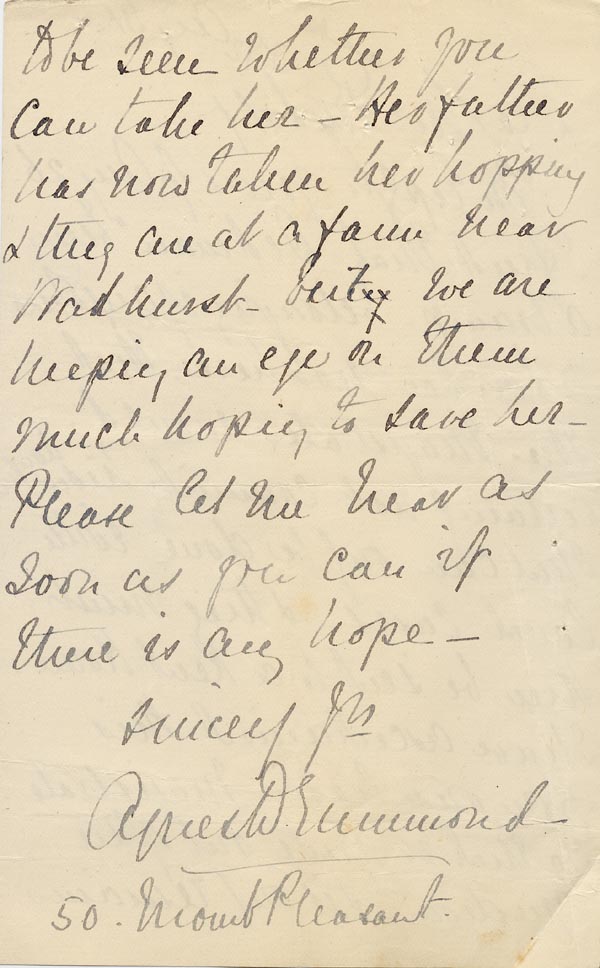 to be seen whether you
can take her - Her father
has now taken her hopping
& they are at a farm near
Wadhurst - but we are
keeping an eye on them
much hoping to save her -
Please let me hear as
soon as you can if
there is any hope -
Sincely yrs
Agnes D Drummond
50. Mount Pleasant.